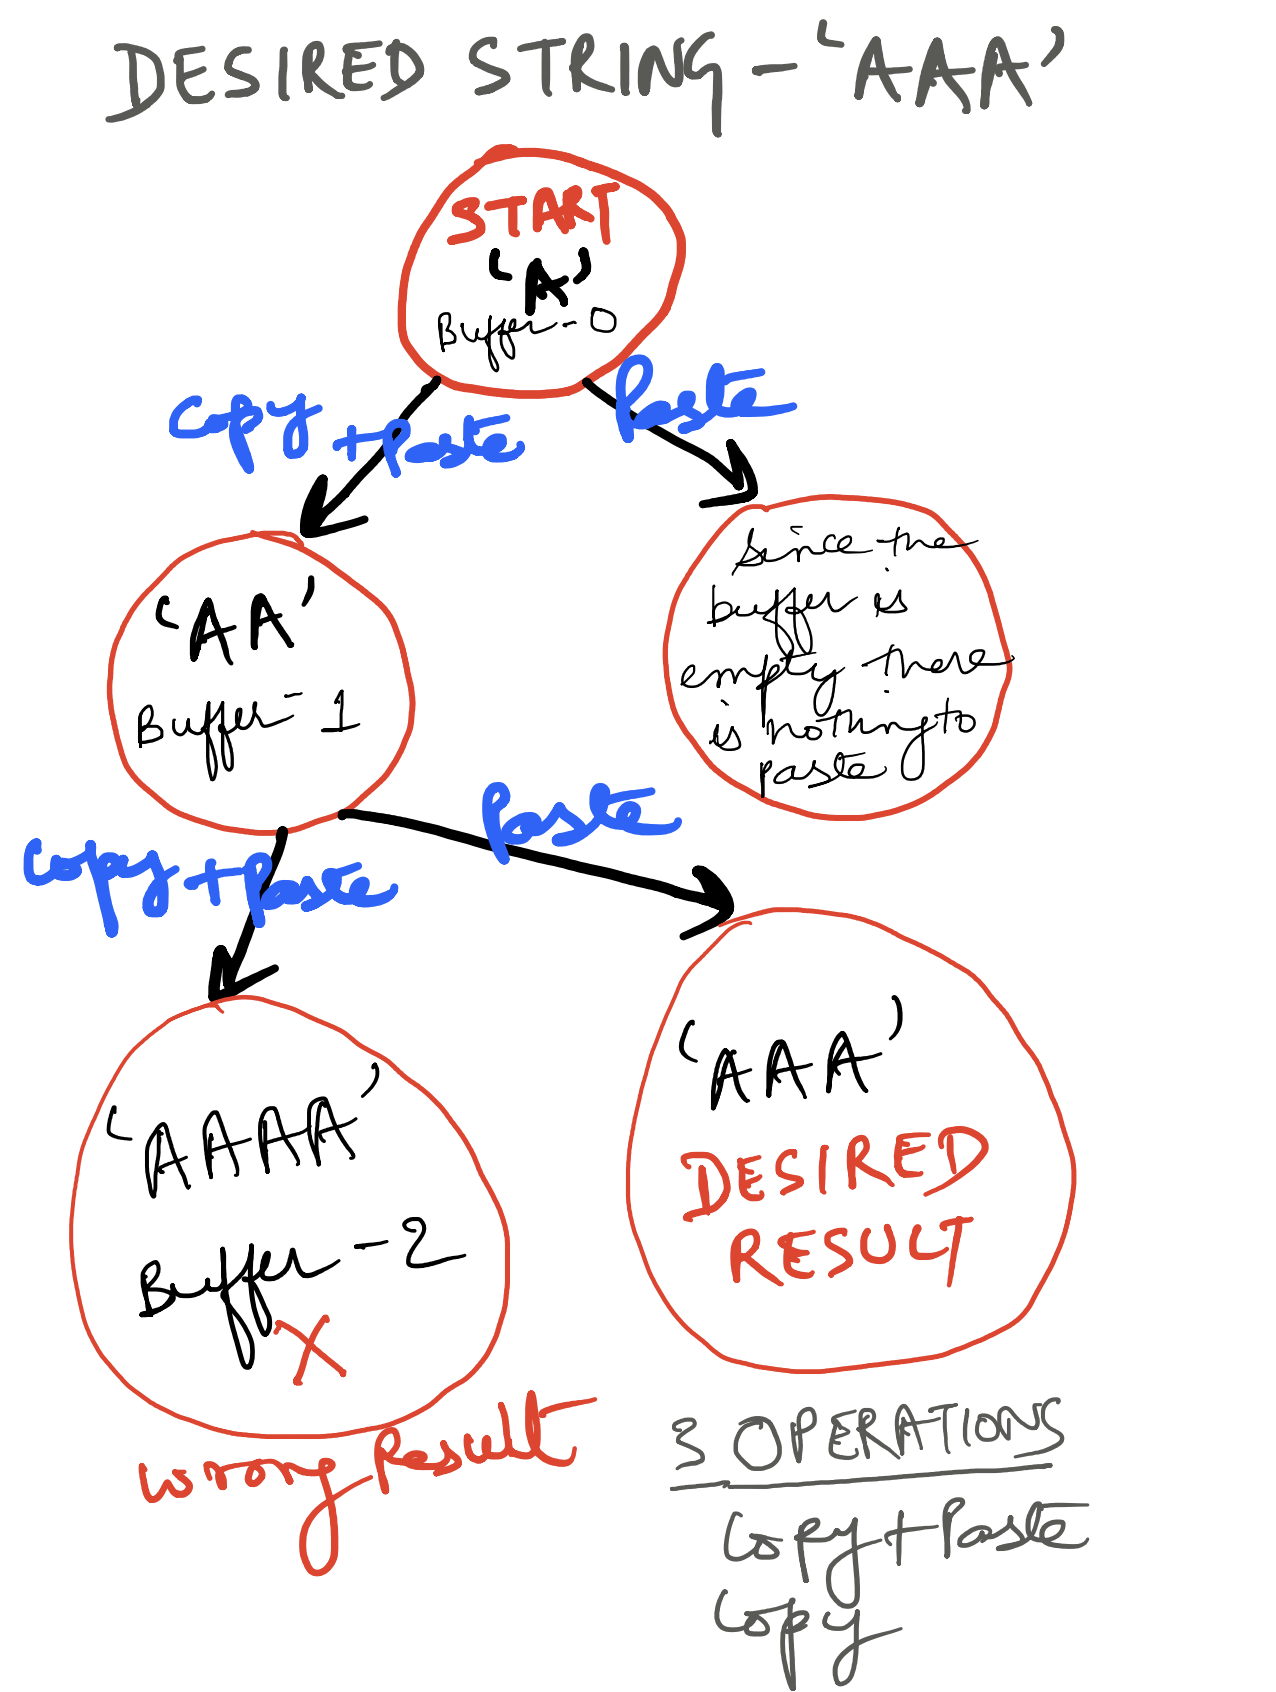 DESIRED STRING - 'AAA'
START
'A'
Buffer - 0
Copy
+ Paste
Paste
'AA'
Buffer - 1
Since the
buffer is
empty there
is nothing to
paste
Copy + Paste
Paste
'AAAA'
Buffer - 2
X
Wrong Result
'AAA'
DESIRED
RESULT
3 OPERATIONS
Copy + Paste
Copy